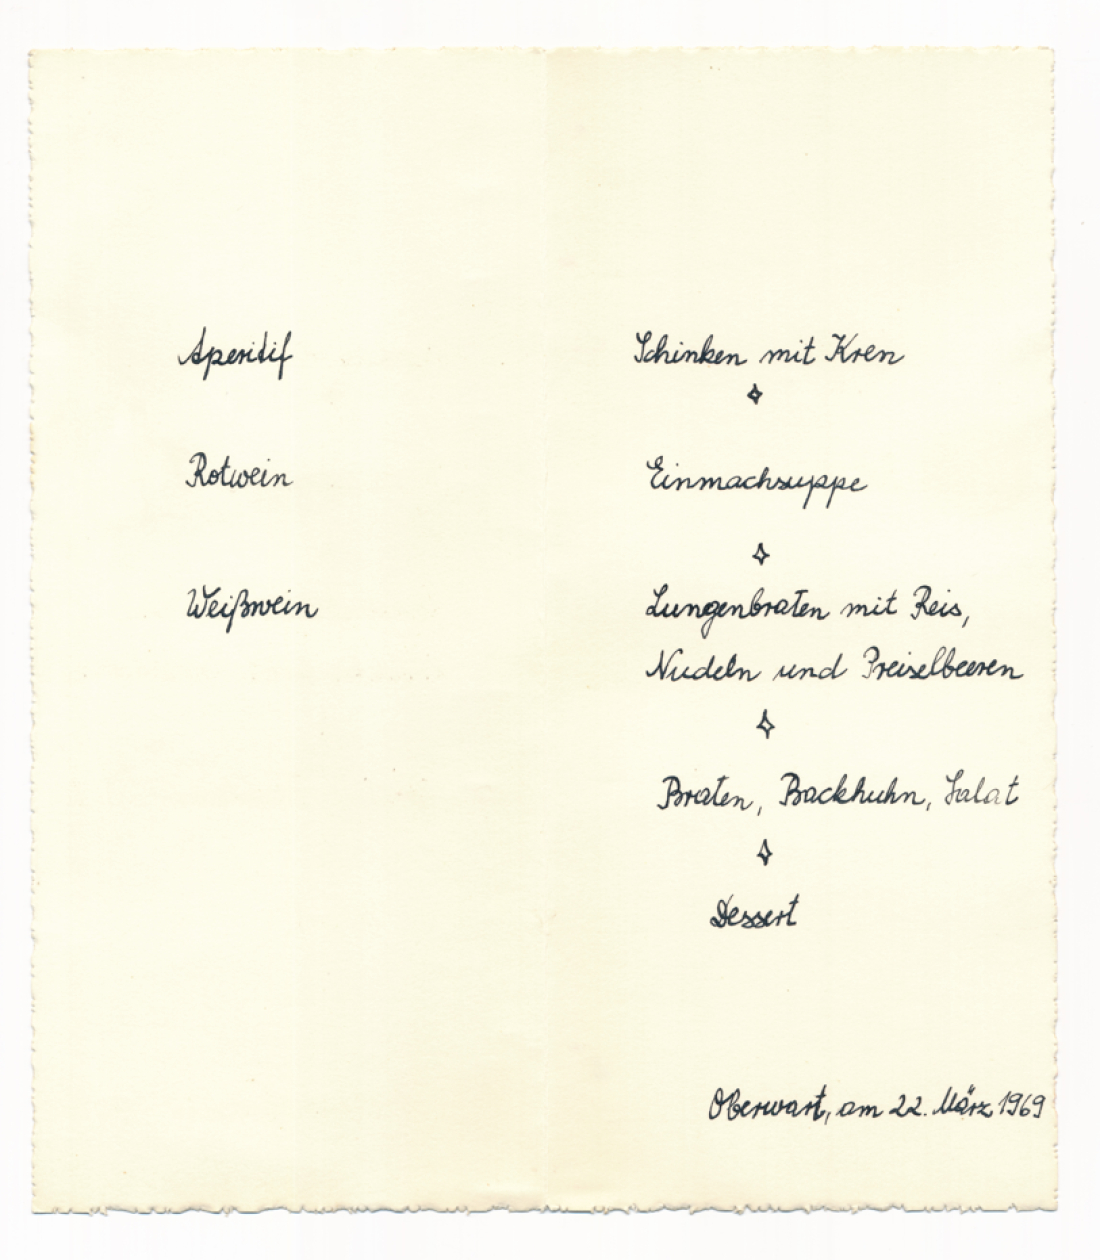 Aperitif
Rotwein
Weißwein
Schinken mit Kren
Einmachsuppe
Lungenbraten mit Reis,
Nudeln und Preiselbeeren
Braten, Backhuhn, Salat
Dessert
Oberwart, am 22. März 1969